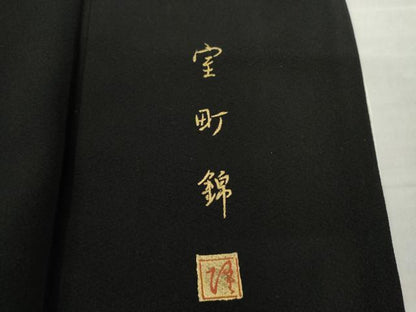 室町錦